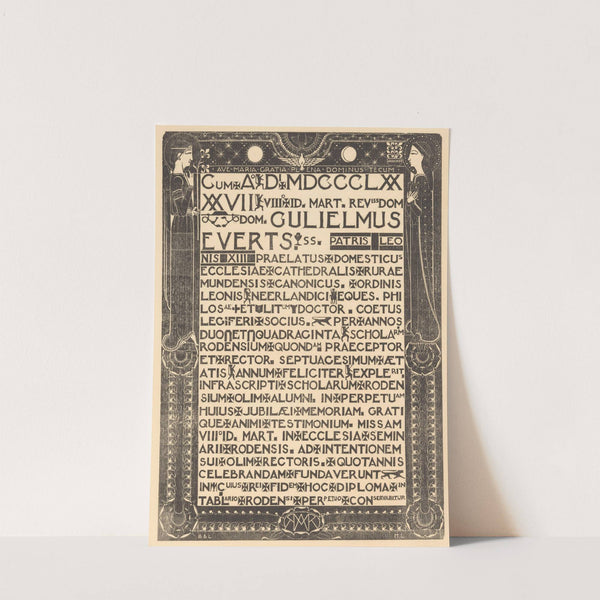 AVE·MARIA·GRATIA·PLENA·DOMINUS·TECUM
CUM A D MDCCCLXX
XXVII VIII ID. MART. REVSS DOM
DOM. GULIELMUS
EVERTS SS. PATRIS LEO
NIS XIII PRAELATUS DOMESTICUS
ECCLESIAE CATHEDRALIS RURAE
MUNDENSIS CANONICUS. ORDINIS
LEONIS NEERLANDICI EQUES. PHI
LOSAE ET LITUM DOCTOR. COETUS
LEGIFERI SOCIUS. PER ANNOS
DUO ET QUADRAGINTA SCHOLARM
RODENSIUM QUONDAM PRAECEPTOR
ET RECTOR. SEPTUAGESIMUM ÆT
ATIS ANNUM FELICITER EXPLERIT.
INFRASCRIPTI SCHOLARUM RODEN
SIUM OLIM ALUMNI. IN PERPETUAM
HUIUS JUBILÆI MEMORIAM. GRATI
QUE ANIMI TESTIMONIUM. MISSAM
VIII ID. MART. IN ECCLESIA SEMIN
ARII RODENSIS. AD INTENTIONEM
SUI OLIM RECTORIS. QUOTANNIS
CELEBRANDAM FUNDAVERUNT
IN CUIUS REI FIDEM HOC DIPLOMA IN
TABLARIO RODENSI PERPETUO CONSERVABITUR